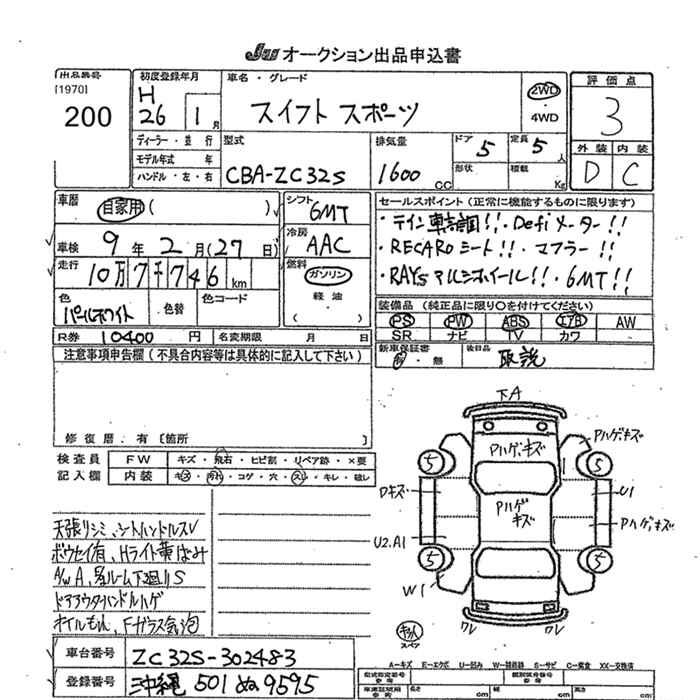 JU オークション出品申込書
出品番号
[1970]
200
初度登録年月
H
26 1月
車名・グレード
スイフト スポーツ
2WD
・
4WD
評価点
3
外装 内装
D C
ディーラー・並行
モデル年式 年
ハンドル・左・右
型式
CBA-ZC32S
排気量
1600
cc
ドア
5
形状
定員
5
人
積載
Kg
車歴
自家用( )
車検 9年 2月(27日)
走行
10万7千746 km
色
パールホワイト
色替
色コード
シフト
6MT
冷房
AAC
燃料
ガソリン
軽油
( )
R券 10400 円
名変期限 月 日
セールスポイント(正常に機能するものに限ります)
・テイン車高調!!・Defiメーター!!
・RECAROシート!!・マフラー!!
・RAYSアルミホイール!!・6MT!!
装備品(純正品に限り○を付けてください)
PS PW ABS エアB AW
SR ナビ TV カワ
新車保証書
有・無
後日品
取説
注意事項申告欄(不具合内容等は具体的に記入して下さい)
修復歴.有〔箇所 〕
検査員
記入欄
FW キズ・飛石・ヒビ割・リペア跡・×要
内装 キズ・汚れ・コゲ・穴・スレ・キレ・破レ
天張りシミ、シートハンドルスレ
ボウセイ有、Hライト黄ばみ
A/W A、
ドアアウターハンドルハゲ
オイルもれ、Fガラス気泡
下A
Pハゲ、キズ
Pハゲ、キズ
5
5
Dキズ
Pハゲ
キズ
U1
Pハゲ、キズ
U2.A1
5
5
W1
ワレ
ワレ
スペア
A-キズ E-エクボ U-凹み W-補修跡 S-サビ C-腐食 XX-交換済
車台番号 ZC32S-302483
登録番号 沖縄 501 ぬ 9595
型式指定番号
参考
類別区分番号
参考
長さ
cm
幅
cm
高さ
cm